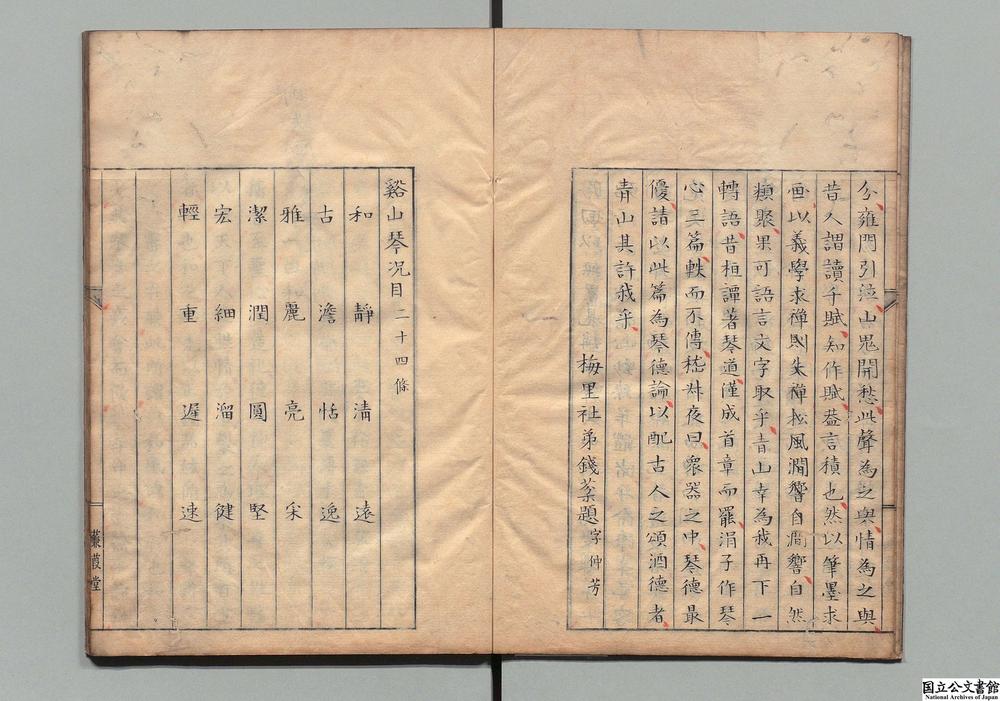 兮雍門引泣山鬼開愁此聲為之與情為之與
昔人謂讀千賦知作賦葢言積也然以筆墨求
画以義學求禅則失禅松風澗響自澗響自然
類聚果可語言文字取乎青山幸為我再下一
轉語昔桓譚著琴道僅成首章而罷涓子作琴
心三篇軼而不傳嵇叔夜曰衆器之中琴德最
優請以此篇為琴德論以配古人之頌酒德者
青山其許我乎
梅里社弟錢棻題字仲芳
谿山琴况目二十四條
和 靜 清 遠
古 澹 恬 逸
雅 麗 亮 采
潔 潤 圓 堅
宏 細 溜 健
輕 重 遲 速
蒹葭堂
国立公文書館
National Archives of Japan